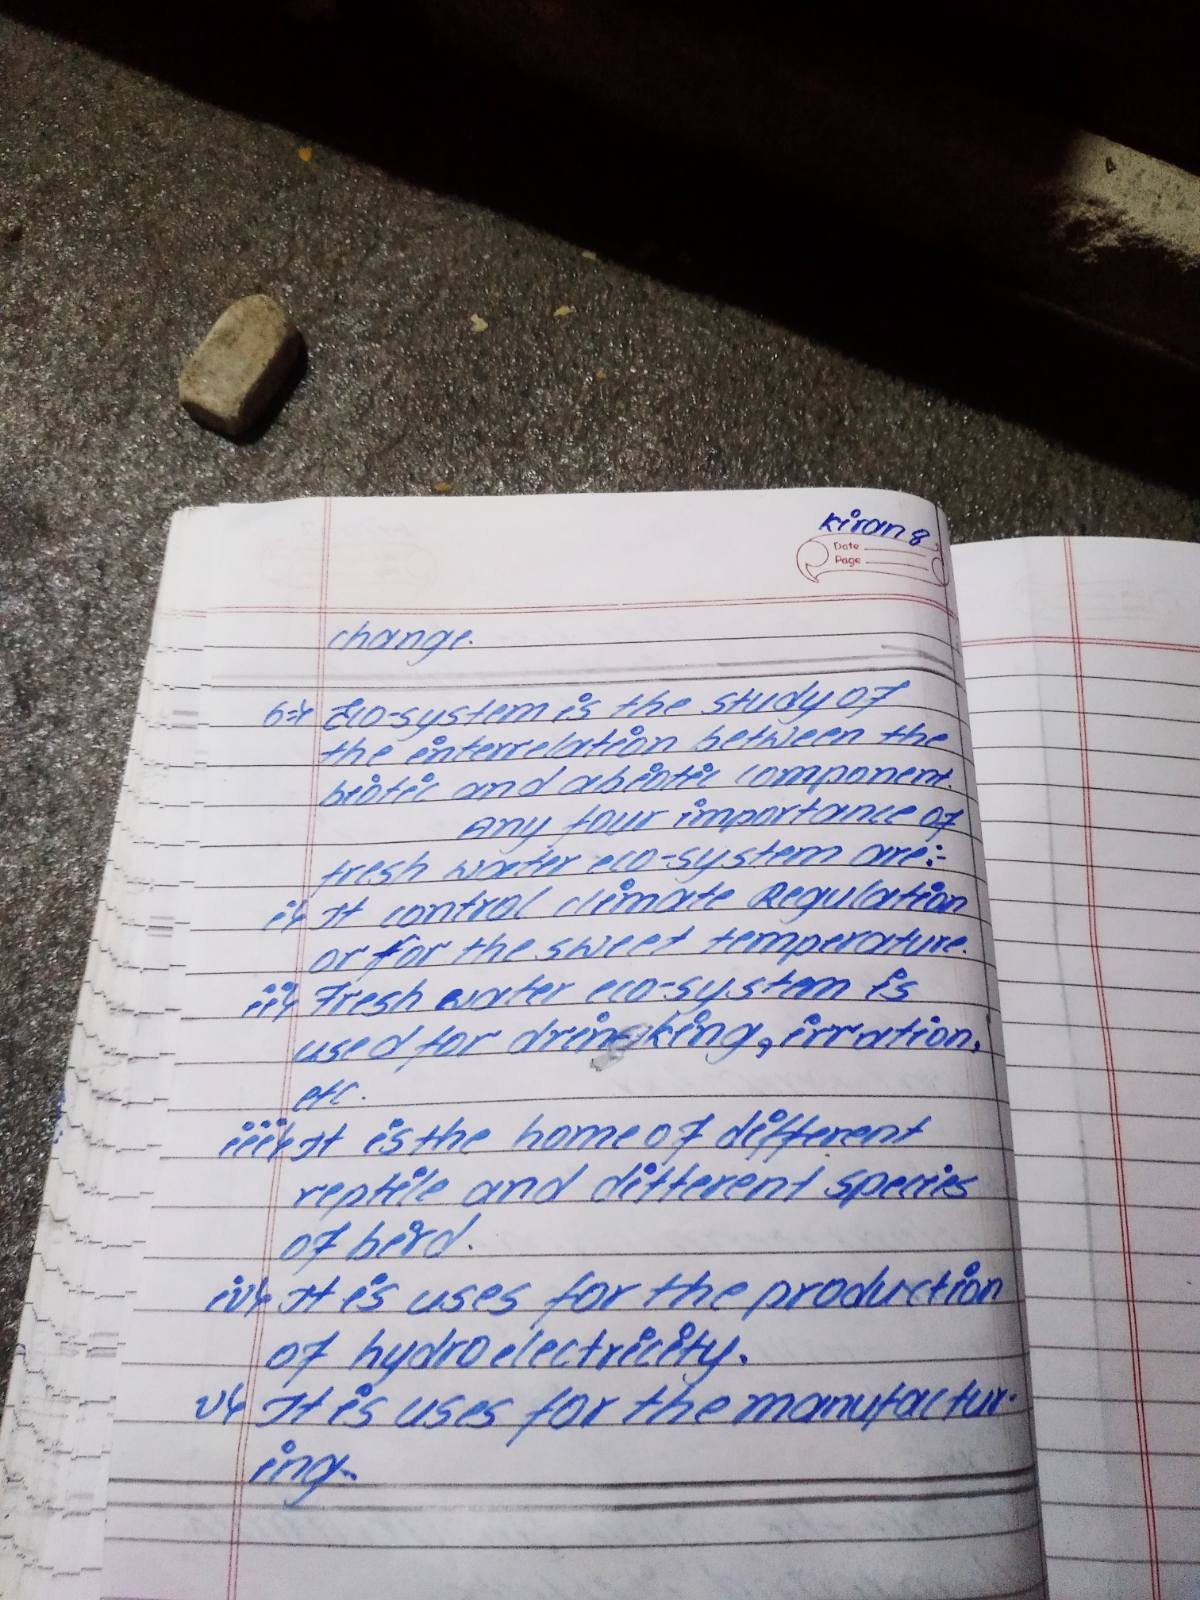 Kiran 8
Date
Page
change.
6⇒ Eco-system is the study of
the interrelation between the
biotic and abiotic component.
Any four importance of
fresh water eco-system are:-
i) It control climate Regulation
or for the sweet temperature.
ii) Fresh water eco-system is
used for drinking, irration,
etc.
iii) It is the home of different
reptile and different species
of beird.
iv) It is uses for the production
of hydroelectricity.
v) It is uses for the manufactur-
ing.